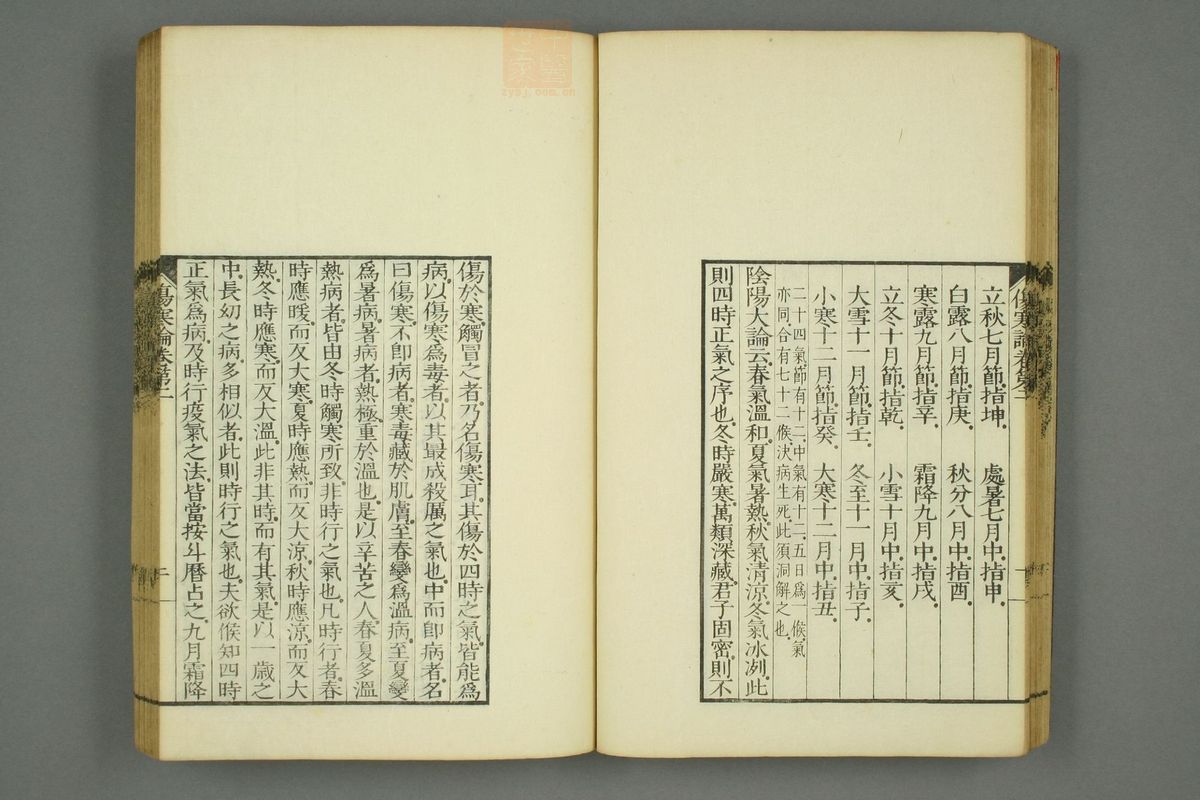 傷寒論卷第二
立秋七月節指坤 處暑七月中指申
白露八月節指庚 秋分八月中指酉
寒露九月節指辛 霜降九月中指戌
立冬十月節指乾 小雪十月中指亥
大雪十一月節指壬 冬至十一月中指子
小寒十二月節指癸 大寒十二月中指丑
二十四氣節有十二中氣有十二五日爲一候氣
亦同合有七十二候決病生死此須洞解之也
陰陽大論云春氣溫和夏氣暑熱秋氣清涼冬氣冰冽此
則四時正氣之序也冬時嚴寒萬類深藏君子固密則不
傷於寒觸冒之者乃名傷寒耳其傷於四時之氣皆能爲
病以傷寒爲毒者以其最成殺厲之氣也中而卽病者名
曰傷寒不卽病者寒毒藏於肌膚至春變爲溫病至夏變
爲暑病暑病者熱極重於溫也是以辛苦之人春夏多溫
熱病者皆由冬時觸寒所致非時行之氣也凡時行者春
時應暖而反大寒夏時應熱而反大涼秋時應涼而反大
熱冬時應寒而反大溫此非其時而有其氣是以一歲之
中長幼之病多相似者此則時行之氣也夫欲候知四時
正氣爲病及時行疫氣之法皆當按斗曆占之九月霜降
傷寒論卷第二
二
zysj.com.cn